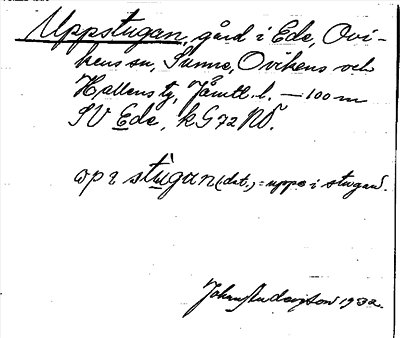 Uppstugan, gård i Ede, Ovi-
kens sn, Sunne, Ovikens och
Hallens tg, Jämtl. l. — 100 m
SV Ede, k G 72 NÖ.
op i stugan (dat.) = uppe i stugan.
1932